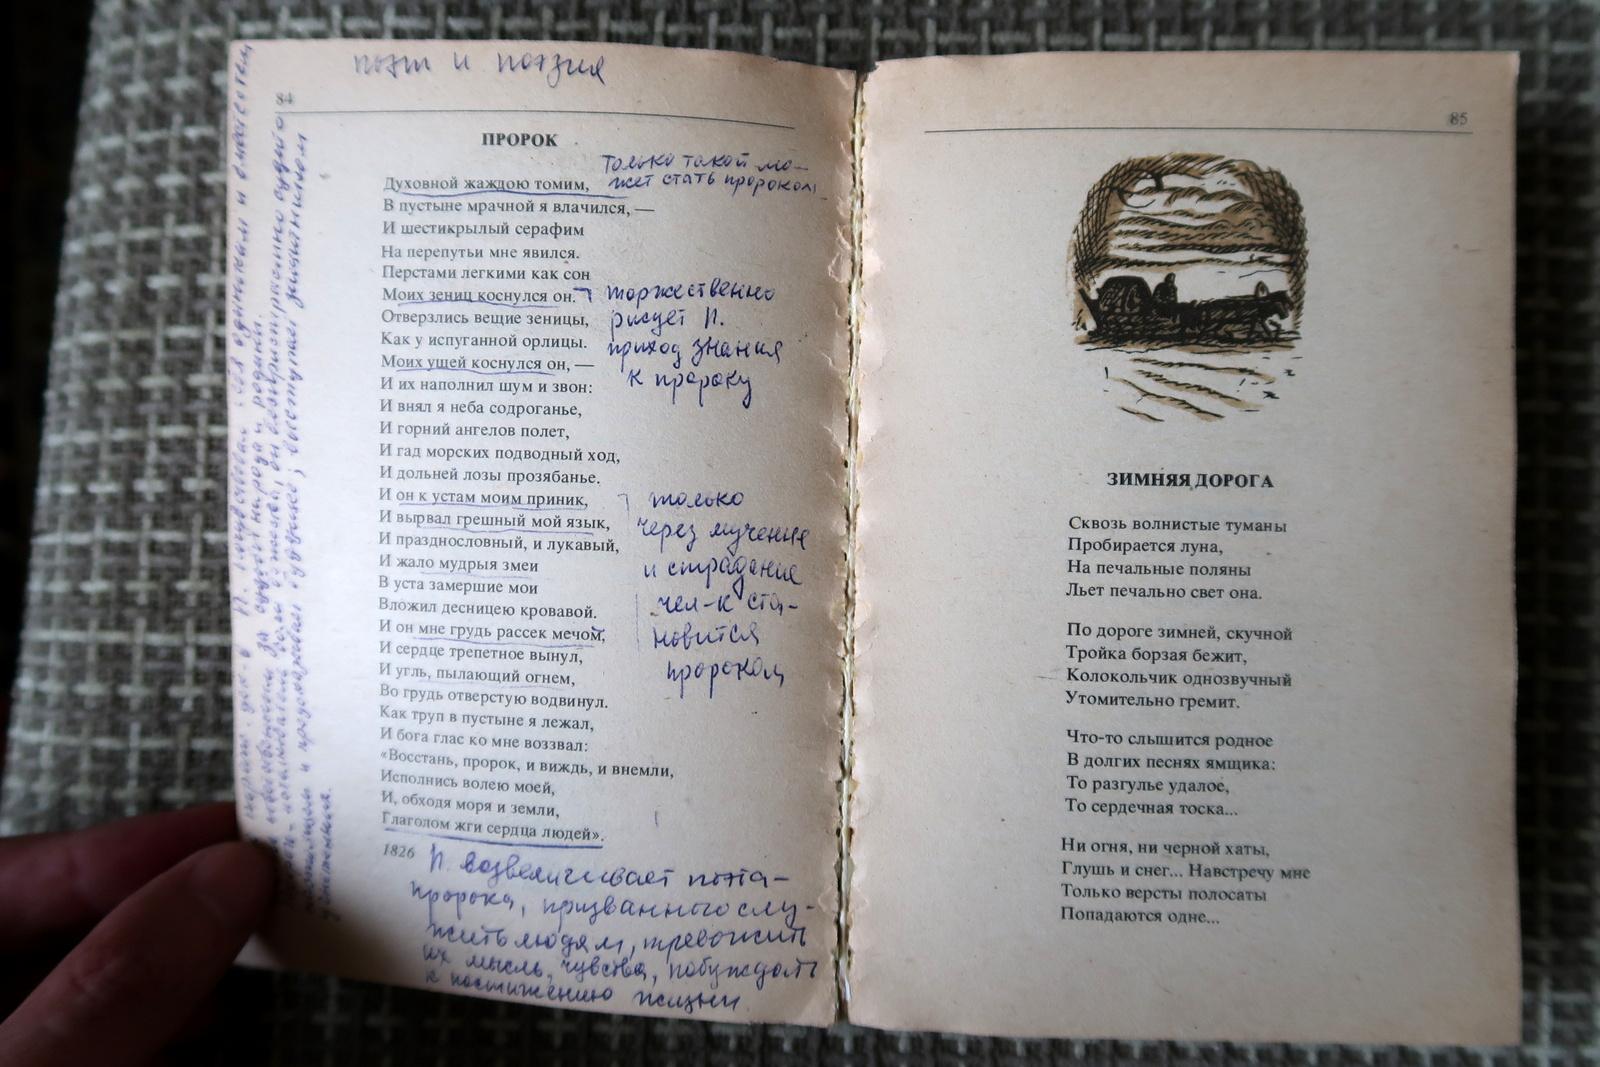 поэт и поэзия
84
ПРОРОК
только такой мо-
жет стать пророком
Духовной жаждою томим,
В пустыне мрачной я влачился, —
И шестикрылый серафим
На перепутьи мне явился.
Перстами легкими как сон
Моих зениц коснулся он.
Отверзлись вещие зеницы,
Как у испуганной орлицы.
Моих ушей коснулся он, —
И их наполнил шум и звон:
И внял я неба содроганье,
И горний ангелов полет,
И гад морских подводный ход,
И дольней лозы прозябанье.
И он к устам моим приник,
И вырвал грешный мой язык,
И празднословный, и лукавый,
И жало мудрыя змеи
В уста замершие мои
Вложил десницею кровавой.
И он мне грудь рассек мечом,
И сердце трепетное вынул,
И угль, пылающий огнем,
Во грудь отверстую водвинул.
Как труп в пустыне я лежал,
И бога глас ко мне воззвал:
«Восстань, пророк, и виждь, и внемли,
Исполнись волею моей,
И, обходя моря и земли,
Глаголом жги сердца людей».
1826
торжественно
рисует П.
приход знания
к пророку
только
через мучение
и страдание
чел-к ста-
новится
пророком
П. возвеличивает поэта-
пророка, призванного слу-
жить людям, тревожить
их мысль, чувства, побуждать
к постижению жизни
П. чувствовал себя одиноким и
за судьбы народа и родины.
85
ЗИМНЯЯ ДОРОГА
Сквозь волнистые туманы
Пробирается луна,
На печальные поляны
Льет печально свет она.
По дороге зимней, скучной
Тройка борзая бежит,
Колокольчик однозвучный
Утомительно гремит.
Что-то слышится родное
В долгих песнях ямщика:
То разгулье удалое,
То сердечная тоска...
Ни огня, ни черной хаты,
Глушь и снег... Навстречу мне
Только версты полосаты
Попадаются одне...